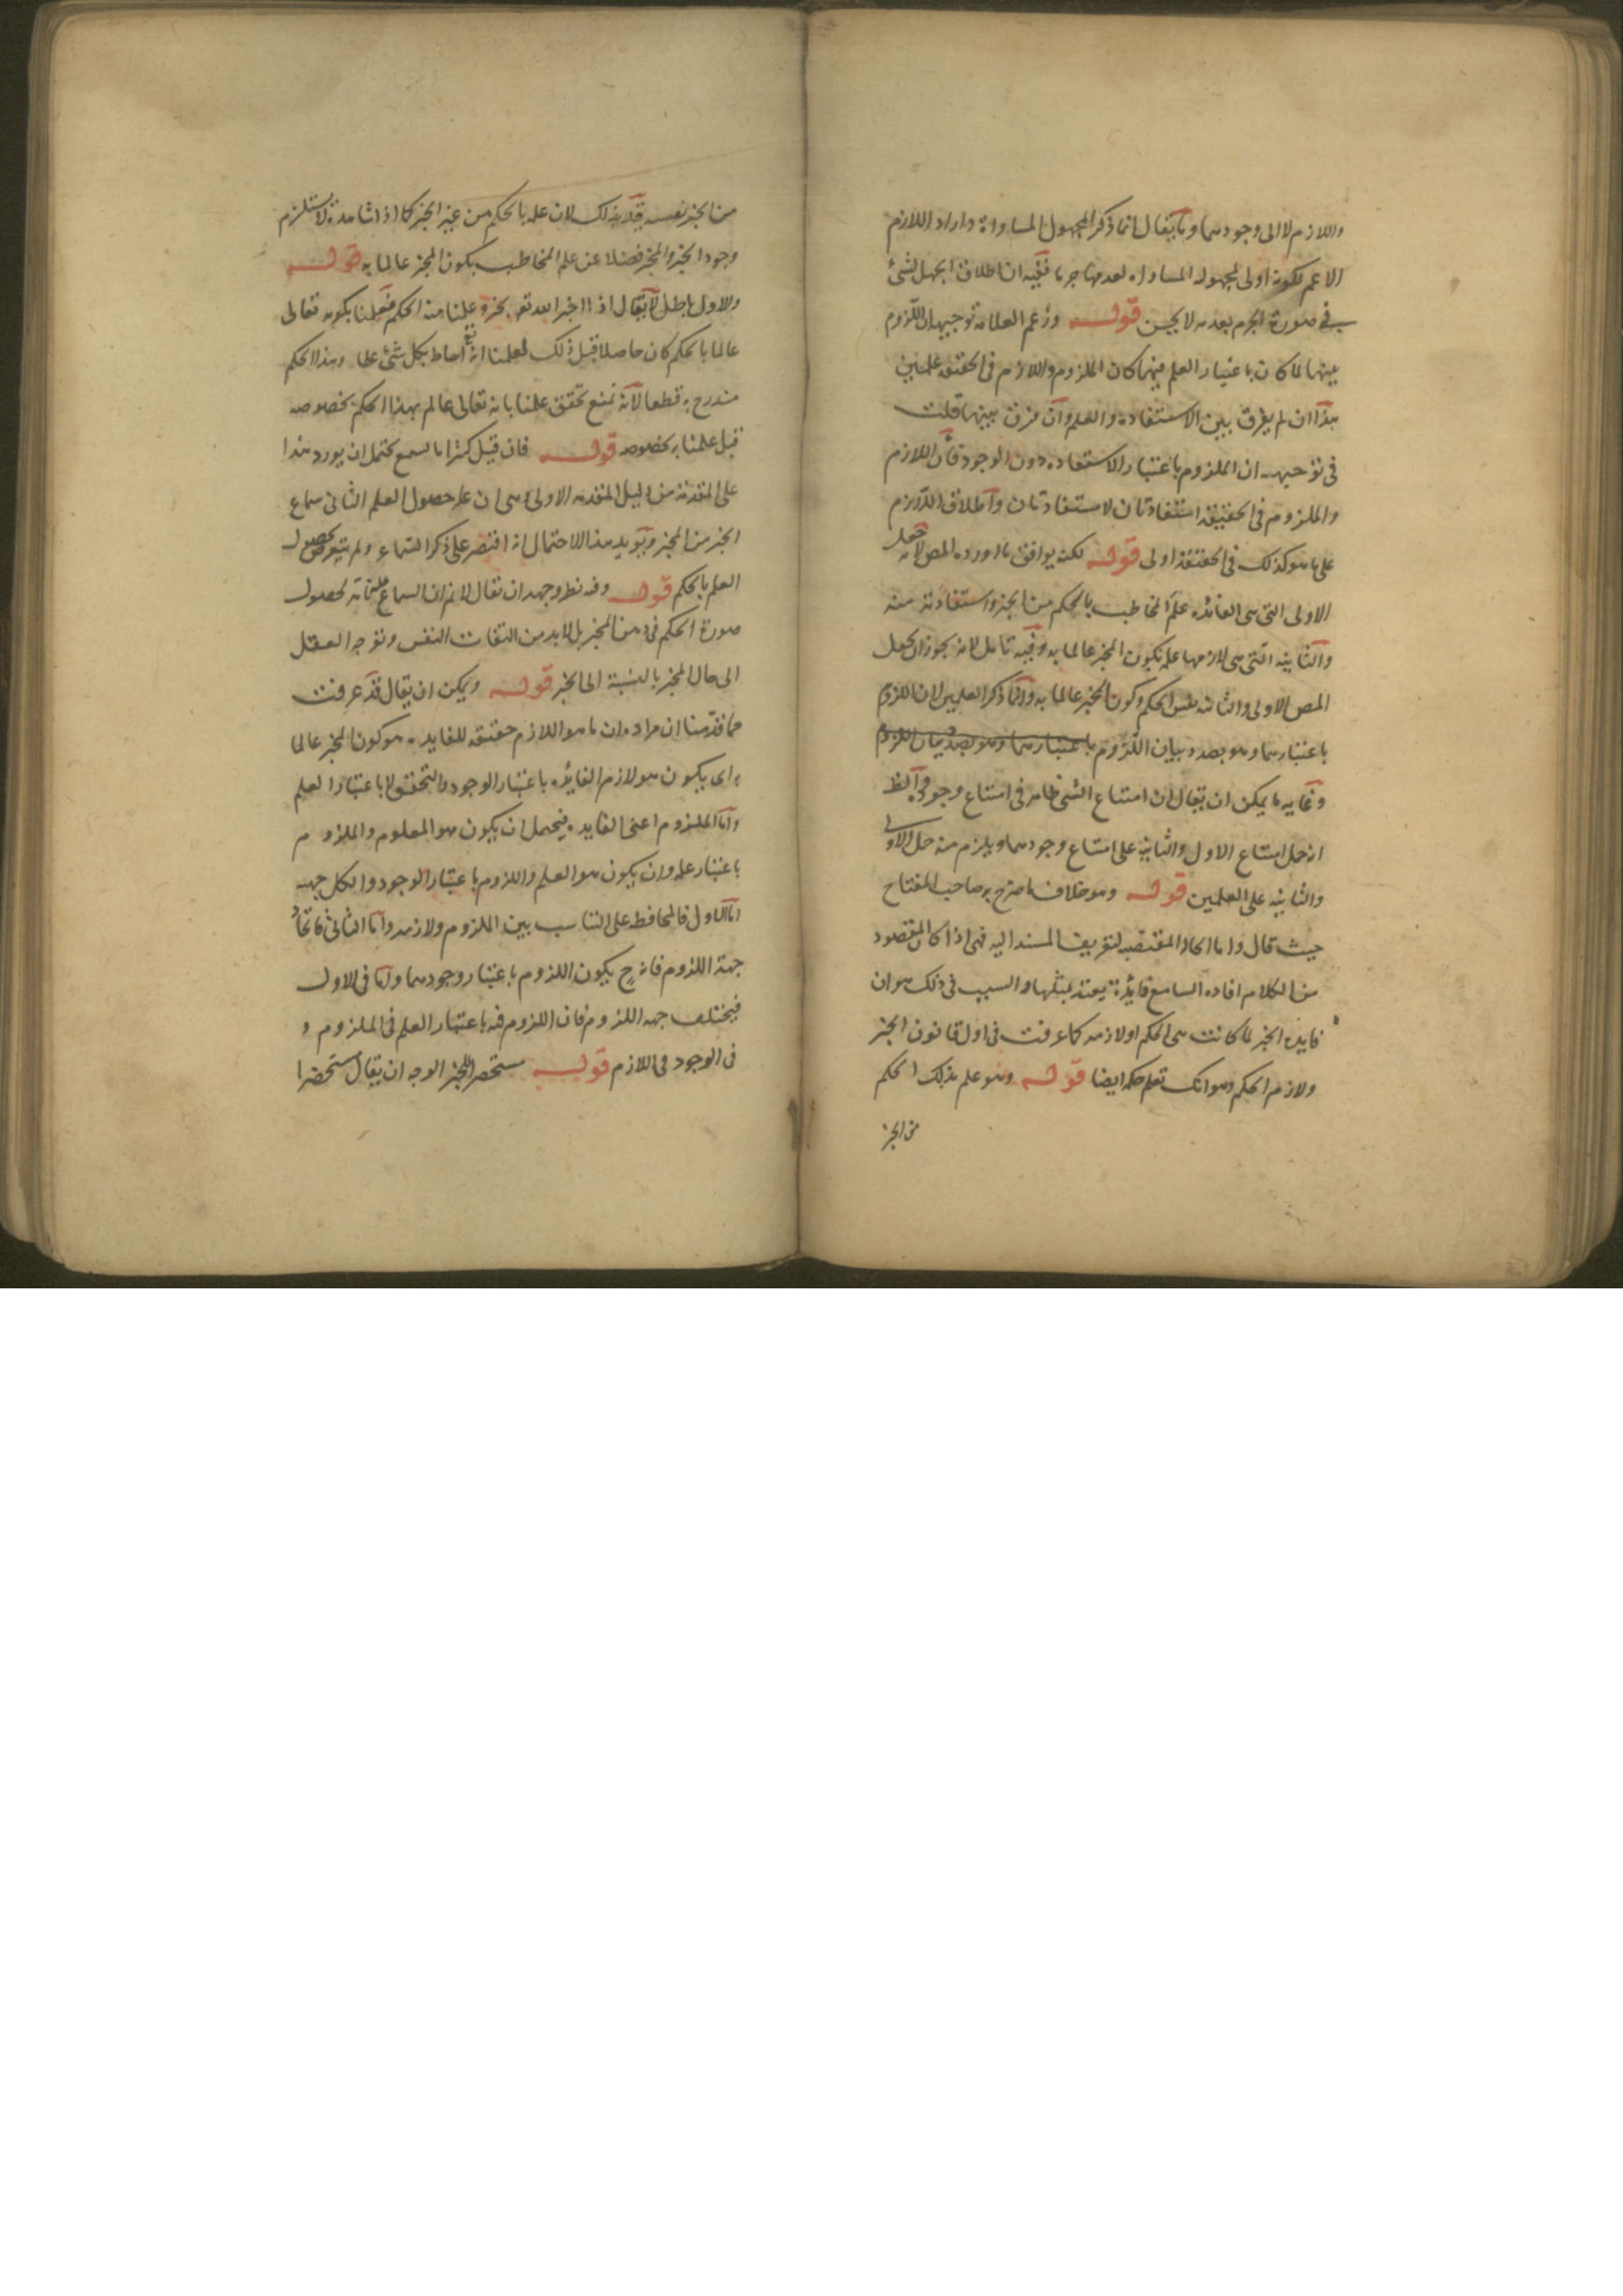 واللازم لا الى وجودهما وما يقال انما ذكر المجهول المساواة واراد اللازم
الاعم لكونه اولى لمجهوله المساواه لعدمها جرما ففيه ان اطلاق الجهل لشئ
في صورة الجزم بعدمه لا يحسن قوله وزعم العلامة توجيهه ان اللزوم
بينهما لما كان باعتبار العلم فيهما كان الملزوم واللازم فى الحقيقة علمين
هذا ان لم يفرق بين الاستفاده والعلم وان فرق بينهما قلت
فى توجيهه ان الملزوم باعتبار الاستفاده دون الوجود فان اللازم
والملزوم فى الحقيقه استفادتان لا مستفادتان واطلاق اللازم
على ما هو كذلك فى الحقيقة اولى قوله لكنه يوافق ما اورده المص لانه جعل
الاولى التى هى الفائده علم المخاطب بالحكم من الخبر واستفادته منه
والثانيه التى هى لازمها علمه بكون المخبر عالما به وفيه تامل لانه يجوز ان يجعل
المص الاولى والثانيه نفس الحكم وكون المخبر عالما به وانما ذكر العلمين لان اللزوم
باعتبارهما وهو بصدد بيان اللزوم باعتبارهما وهو بصدد بيان اللزوم
وغايه ما يمكن ان يقال ان امتناع الشئ ظاهر فى امتناع وجوده والظ
انه حمل امتناع الاول والثانيه على امتناع وجودهما ويلزم منه حمل الاولى
والثانيه على العلمين قوله وهو خلاف ما صرح به صاحب المفتاح
حيث قال واما الحالة المقتضيه لتعريف المسند اليه فهى اذا كان المقصود
من الكلام افاده السامع فايدة يعتد بمثلها والسبب فى ذلك هو ان
فايدة الخبر لما كانت هى الحكم او لازمه كما عرفت فى اول قانون الخبر
ولازم الحكم وهو انك تعلم حكمه ايضا قوله وهو علم بذلك الحكم
من الخبر
من الخبر نفسه قيد بذلك لان علمه بالحكم من غير الخبر كما اذا شاهده لا يستلزم
وجود الخبر والمخبر فضلا عن علم المخاطب بكون المخبر عالما به قوله
والاول باطل لا يقال اذا اخبر الله تعالى بخبر وعلمنا منه الحكم فعلمنا بكونه تعالى
عالما بالحكم كان حاصلا قبل ذلك لعلمنا انه تع احاط بكل شئ علما وهذا الحكم
مندرج به قطعا لانه نمنع تحقق علمنا بانه تعالى عالم بهذا الحكم بخصوصه
قبل علمنا به بخصوصه قوله فان قيل كثرا ما نسمع يحتمل ان يورد هذا
على المقدمة من دليل المقدمه الاولى وهى ان علة حصول العلم الثانى سماع
الخبر من المخبر ويؤيد هذا الاحتمال انه اقتصر على ذكر السماع ولم يتعرض لحصول
العلم بالحكم قوله وفيه نظر وجهه ان يقال لا نم ان السماع علة تامة لحصول
صورة الحكم فى ذهن المخبر بل لابد من التفات النفس وتوجه العقل
الى حال المخبر بالنسبة الى الخبر قوله ويمكن ان يقال قد عرفت
مما قدمنا ان مراده ان ما هو اللازم حقيقه للفايده هو كون المخبر عالما
به اى يكون هو لازم الفايده باعتبار الوجود والتحقق لا باعتبار العلم
واما الملزوم اعنى الفايده فيحتمل ان يكون هو المعلوم والملزوم
باعتبار علمه وان يكون هو العلم واللزوم باعتبار الوجود ولكل جهه
اما الاول فالمحافظه على التناسب بين الملزوم ولازمه واما الثانى فاتحاد
جهة اللزوم فانه ح يكون اللزوم باعتبار وجودهما واما فى الاول
فيختلف جهه اللزوم فان اللزوم فيه باعتبار العلم فى الملزوم و
فى الوجود فى اللازم قوله مستحضر للخبر الوجه ان يقال مستحضرا